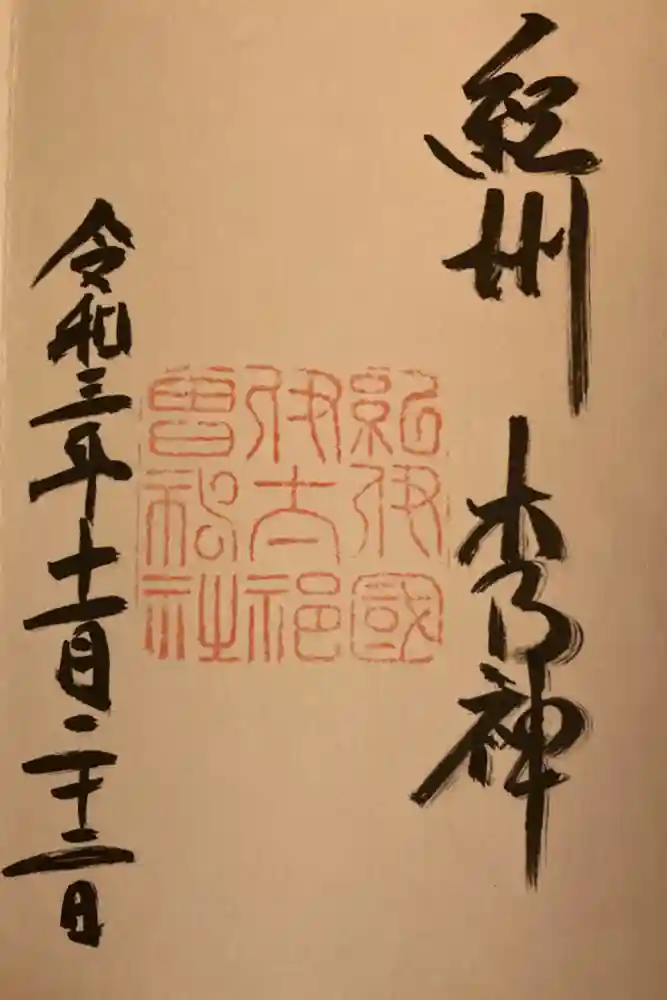 紀州 木乃神
紀伊國
伊太祁
曽神社
令和三年十一月二十二日